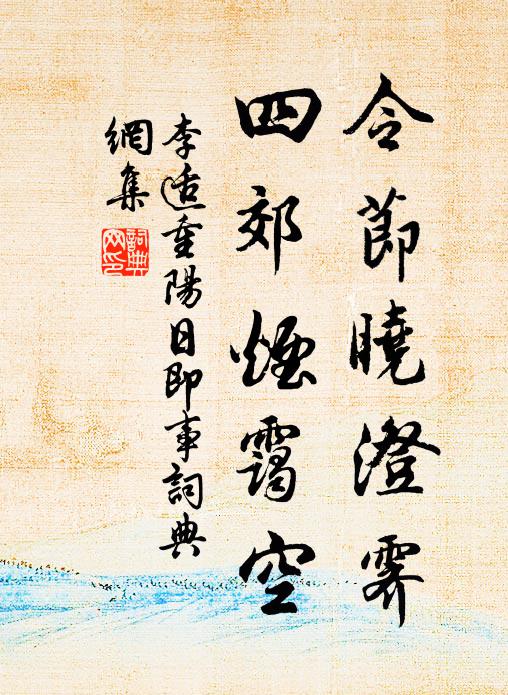 令節曉澄霽
四郊煙靄空
李适重陽日即事詞典
網集
詞典
网印